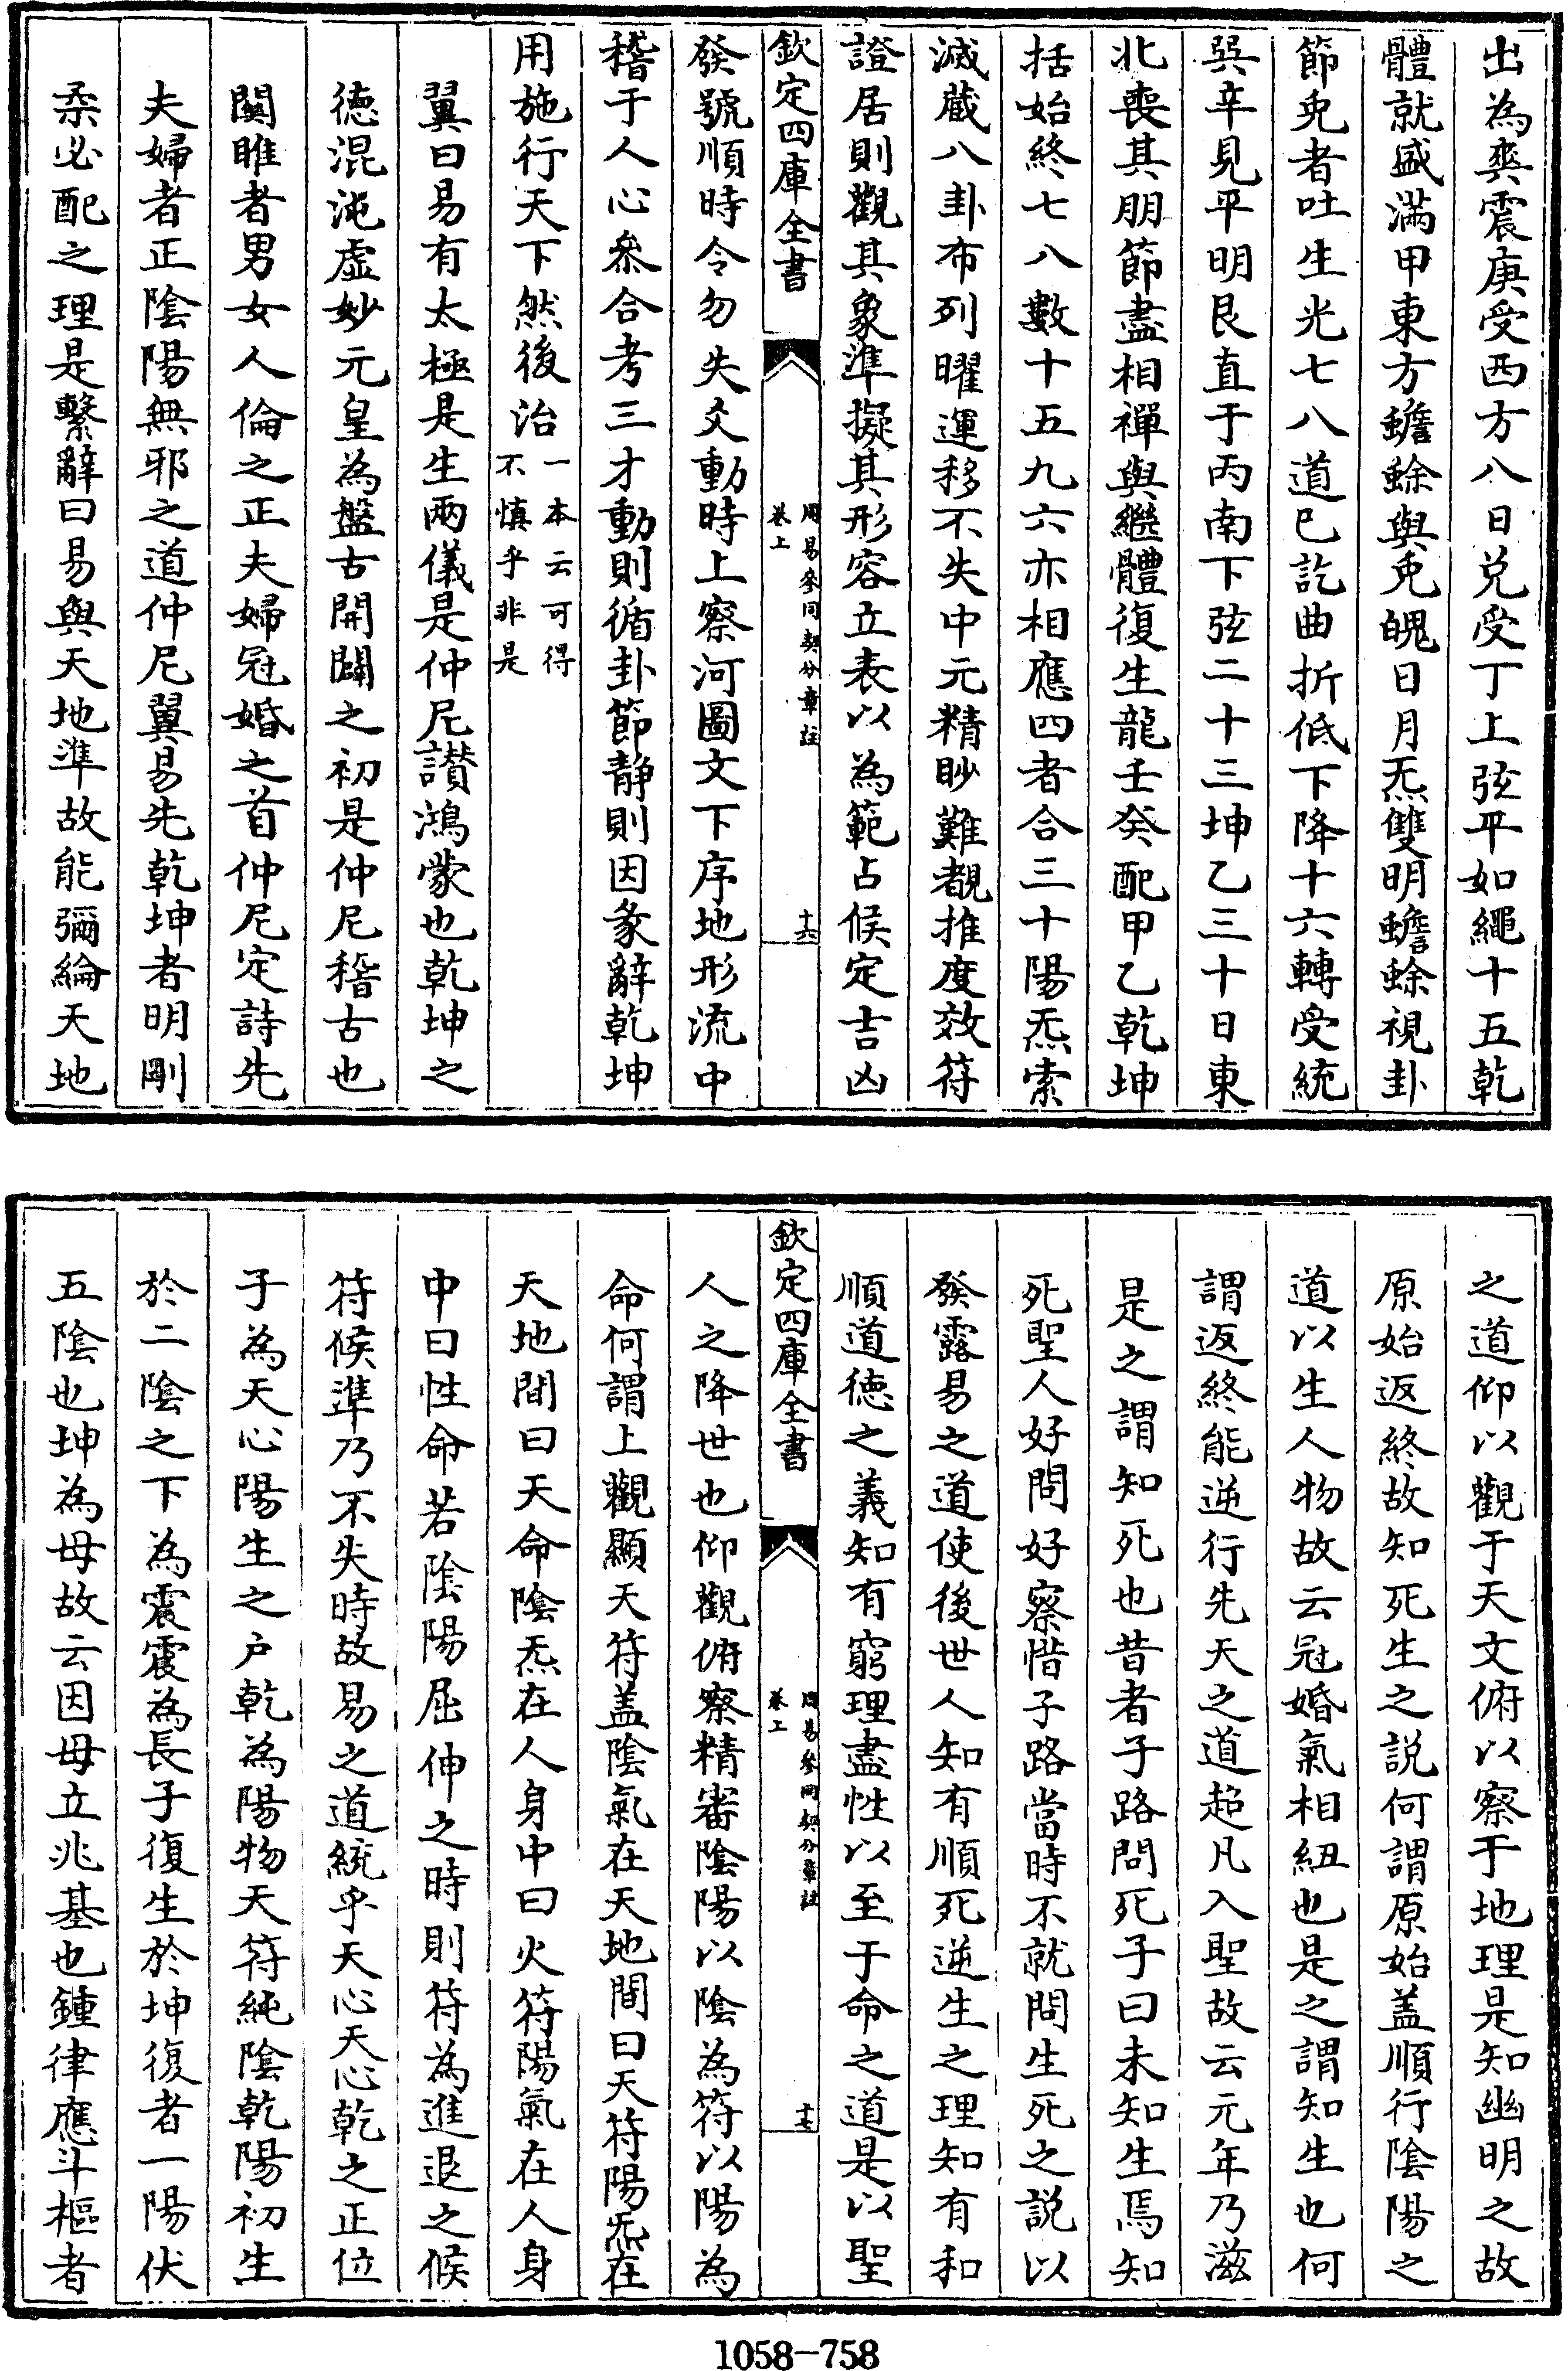 出為爽震庚受西方八日兌受丁上弦平如繩十五乾
體就盛滿甲東方蟾蜍與兎魄日月炁雙明蟾蜍視卦
節兎者吐生光七八道已訖曲折低下降十六轉受統
巽辛見平明艮直于丙南下弦二十三坤乙三十日東
北喪其朋節盡相禪與繼體復生龍壬癸配甲乙乾坤
括始終七八數十五九六亦相應四者合三十陽炁索
滅藏八卦布列曜運移不失中元精眇難覩推度效符
證居則觀其象準擬其形容立表以為範占候定吉凶
欽定四庫全書
周易參同契分章註
卷上
十六
發號順時令勿失爻動時上察河圖文下序地形流中
稽于人心叅合考三才動則循卦節静則因彖辭乾坤
用施行天下然後治一本云可得
不慎乎非是
翼曰易有太極是生兩儀是仲尼讃鴻蒙也乾坤之
德混沌虛妙元皇為盤古開闢之初是仲尼稽古也
闗雎者男女人倫之正夫婦冠婚之首仲尼定詩先
夫婦者正陰陽無邪之道仲尼翼易先乾坤者明剛
柔必配之理是繫辭曰易與天地準故能彌綸天地
之道仰以觀于天文俯以察于地理是知幽明之故
原始返終故知死生之説何謂原始盖順行陰陽之
道以生人物故云冠婚氣相紐也是之謂知生也何
謂返終能逆行先天之道超凡入聖故云元年乃滋
是之謂知死也昔者子路問死子曰未知生焉知
死聖人好問好察惜子路當時不就問生死之説以
發露易之道使後世人知有順死逆生之理知有和
順道德之義知有窮理盡性以至于命之道是以聖
欽定四庫全書
周易參同契分章註
卷上
十七
人之降世也仰觀俯察精審陰陽以陰為符以陽為
命何謂上觀顯天符盖陰氣在天地間曰天符陽炁在
天地間曰天命陰炁在人身中曰火符陽氣在人身
中曰性命若陰陽屈伸之時則符為進退之候
符候準乃不失時故易之道統乎天心天心乾之正位
子為天心陽生之户乾為陽物天符純陰乾陽初生
於二陰之下為震震為長子復生於坤復者一陽伏
五陰也坤為母故云因母立兆基也鍾律應斗樞者
1058-758